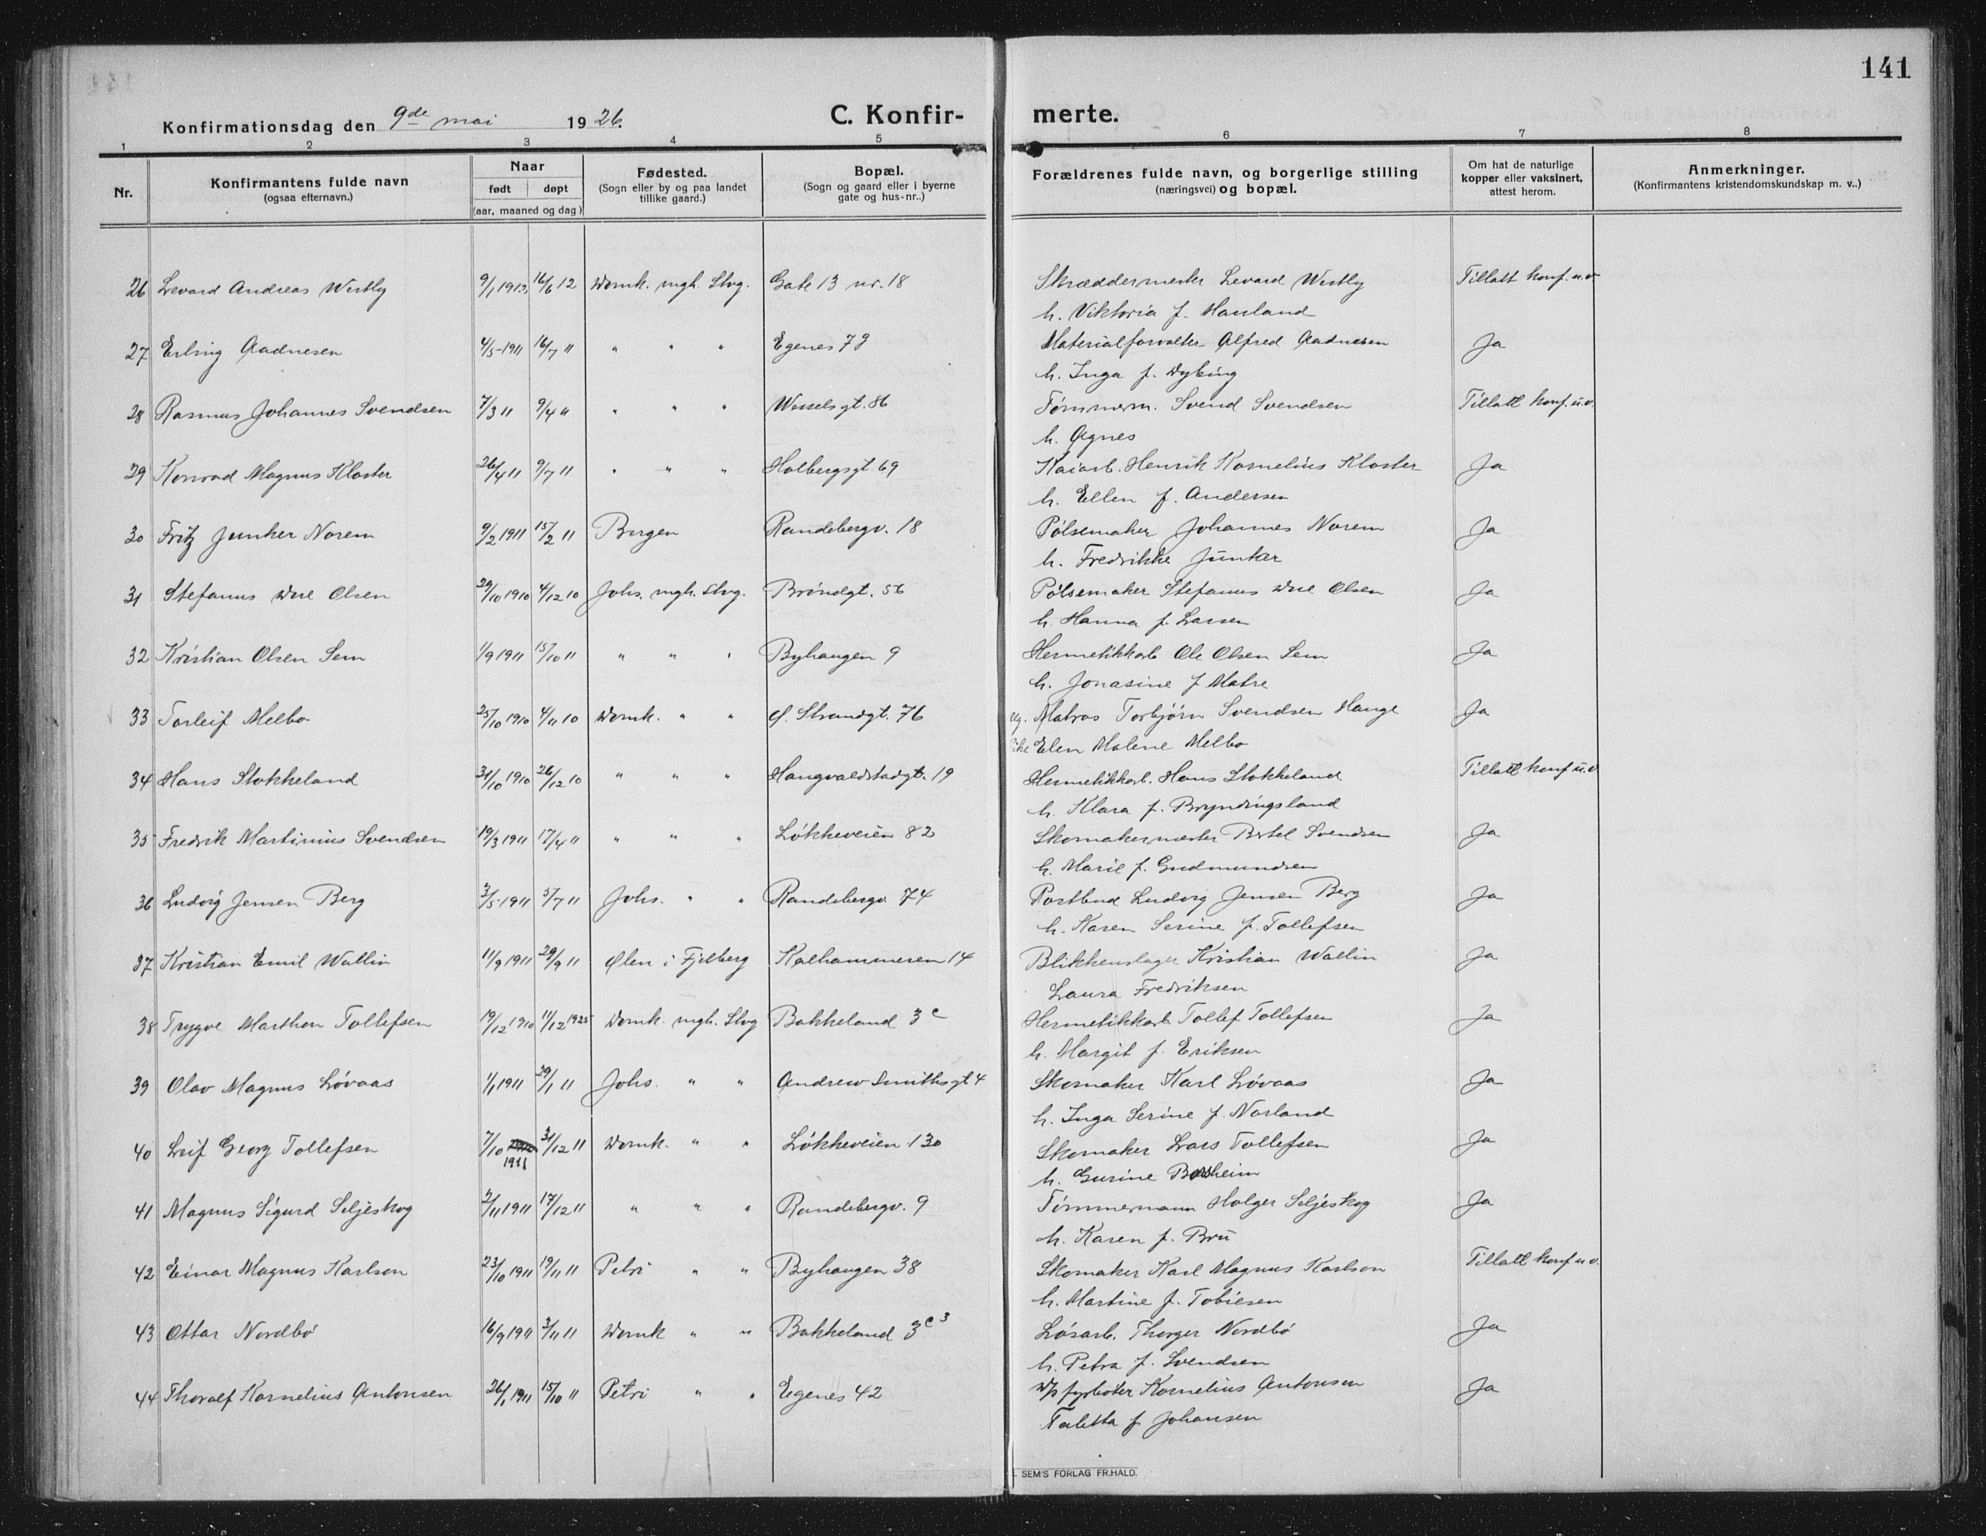 141
Konfirmationsdag den 9de mai 1926.
C. Konfirmerte.
1 2 3 4 5 6 7 8
Nr.
Konfirmantens fulde navn
(ogsaa efternavn.)
Naar
født døpt
(aar, maaned og dag)
Fødested.
(Sogn eller by og paa landet
tillike gaard.)
Bopæl.
(Sogn og gaard eller i byerne
gate og hus-nr..)
Forældrenes fulde navn, og borgerlige stilling
(næringsvei) og bopæl.
Om hat de naturlige
kopper eller vaksinert,
attest herom.
Anmerkninger.
(Konfirmantens kristendomskundskap m. v..)
26 Levard Andreas Westly 9/1 1912 16/6 12 Domk. mgh. Stvg. Gate 13 nr. 18 Skræddermester Levard Westly Tillatt konf. u.v
h. Viktoria f. Hauland
27 Erling Aadnesen 4/5-1911 16/7 11 " " " Egenes 79 Materialforvalter Alfred Aadnesen Ja
h. Inga f. Dybing
28 Rasmus Johannes Svendsen 7/3 11 9/4 " " " " Wesselsgt. 86 Tømmerm. Svend Svendsen Tillatt konf. u.v.
h. Agnes
29 Konrad Magnus Kloster 26/4 11 9/7 11 " " " Holbergsgt. 69 Kaiarb. Henrik Kornelius Kloster Ja
h. Ellen f. Andersen
30 Fritz Junker Norem 9/2 1911 15/2 11 Bergen Randebergv. 18 Pølsemaker Johannes Norem Ja
h. Fredrikke Junker
31 Stefanus Due Olsen 29/10 1910 4/12 10 Johs. mgh. Stvg. Brøndgt. 56 Pølsemaker Stefanus Due Olsen Ja
h. Hanna f. Larsen
32 Kristian Olsen Sem 1/9 1911 15/10 11 " " " Byhaugen 9 Hermetikkarb Ole Olsen Sem Ja
h. Jonasine f Matre
33 Torleif Melbo 25/10 1910 4/11 10 Domk. " " Ø. Strandgt. 76 ug. Matros Torbjørn Svendsen Hauge Ja
Pike Elen Malene Melbo
34 Hans Stokkeland 31/10 1910 26/12 10 " " " Haugvaldstadgt. 19 Hermetikkarb. Hans Stokkeland Tillatt konf u.v
h. Klara f. Bryndingsland
35 Fredrik Martinius Svendsen 19/3 1911 17/4 11 " " " Løkkeveien 82 Skomakermester Bertel Svendsen Ja
h. Marie f. Gudmundsen
36 Ludvig Jensen Berg 3/5-1911 5/7 11 Johs. " " Randebergv. 74 Postbud Ludvig Jensen Berg Ja
h. Karen Serine f. Tollefsen
37 Kristian Emil Wallin 11/9 1911 29/9 11 Ølen i Fjelberg Kalhammeren 14 Blikkenslager Kristian Wallin Ja
Laura Fredriksen
38 Trygve Marthon Tollefsen 19/12 1910 11/12 1925 Domk. mgh. Stvg Bakkeland 3c Hermetikkarb Tollef Tollefsen Ja
h. Margit f. Eriksen
39 Olav Magnus Løvaas 1/1 1911 29/1 11 Johs. " " Andrew Smithsgt 4 Skomaker Karl Løvaas Ja
h. Inga Serine f. Norland
40 Leif Georg Tollefsen 7/10 1911 31/12 11 Domk. " " Løkkeveien 130 Skomaker Lars Tollefsen Ja
h. Gurine Borsheim
41 Magnus Sigurd Seljeskog 2/11 1911 17/12 11 " " " Randebergv. 9 Tømmermann Holger Seljeskog Ja
h. Karen f. Bru
42 Einar Magnus Karlson 23/10 1911 19/11 11 Petri " " Byhaugen 38 Skomaker Karl Magnus Karlson Tillatt konf u.v.
h. Martine f. Tobiesen
43 Ottar Nordbø 16/9 1911 3/11 11 Domk " " Bakkeland 3c3 Løsarb. Thorger Nordbø Ja
h. Petra f. Svendsen
44 Thoralf Kornelius Antonsen 26/1 1911 15/10 11 Petri " " Egenes 42 D/s fyrbøter Kornelius Antonsen Ja
Taletta f. Johansen
SEM'S FORLAG FR.HALD.